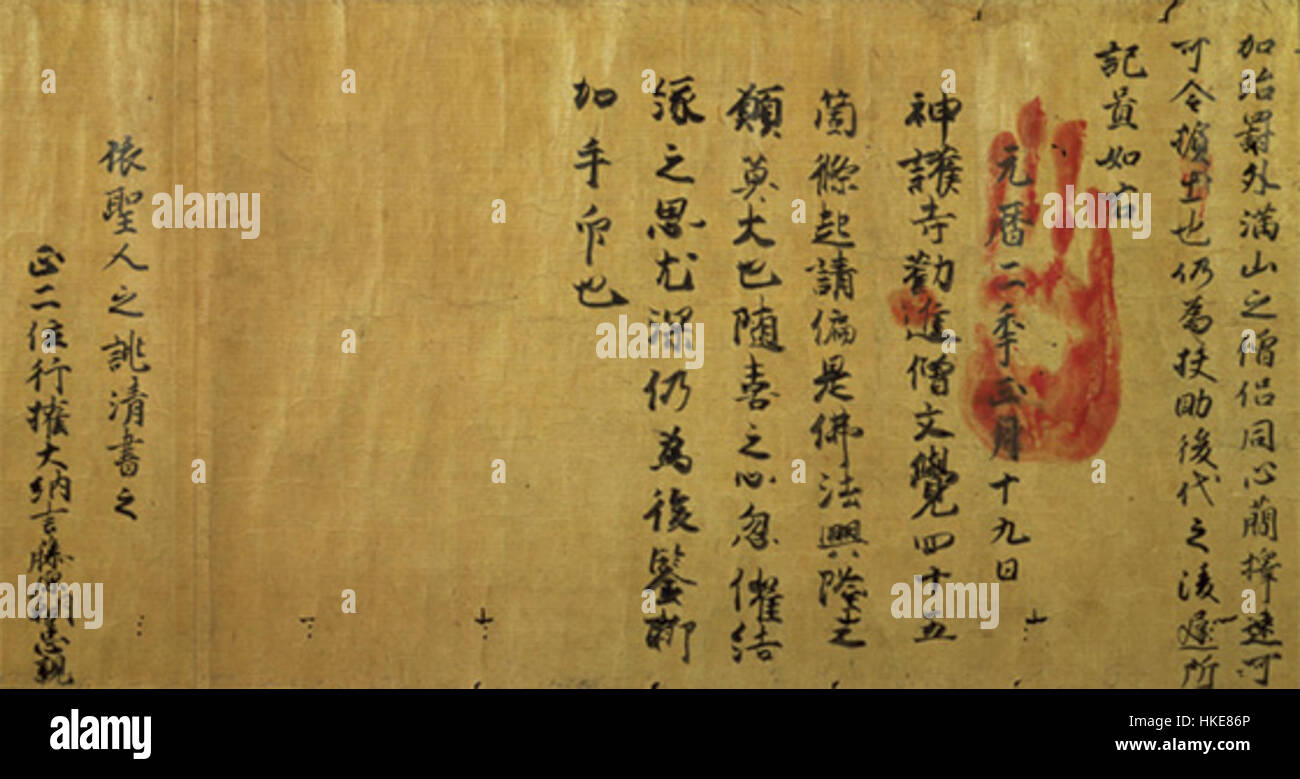 加治罸外満山之僧侶同心簡擇速可
可令擯出也仍為扶助後代之陵遅所
記置如右
元暦二季正月十九日
神護寺勸進僧文覺四十五
箇條起請偏是佛法興隆之
願莫大也随喜之心忽催結
縁之思尤深仍為後鑒聊
加手印也
依聖人之誂清書之
正二位行權大納言藤原朝臣忠親
alamy
alamy
alamy
alamy stock photo
HKE86P
www.alamy.com